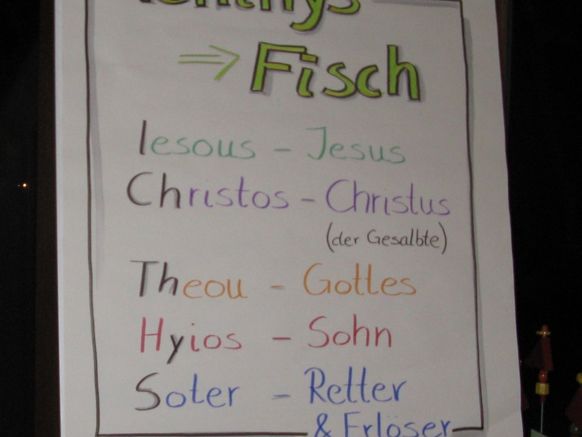 Ichthys
⇒ Fisch
Iesous – Jesus
Christos – Christus
(der Gesalbte)
Theou – Gottes
Hyios – Sohn
Soter – Retter
& Erlöser